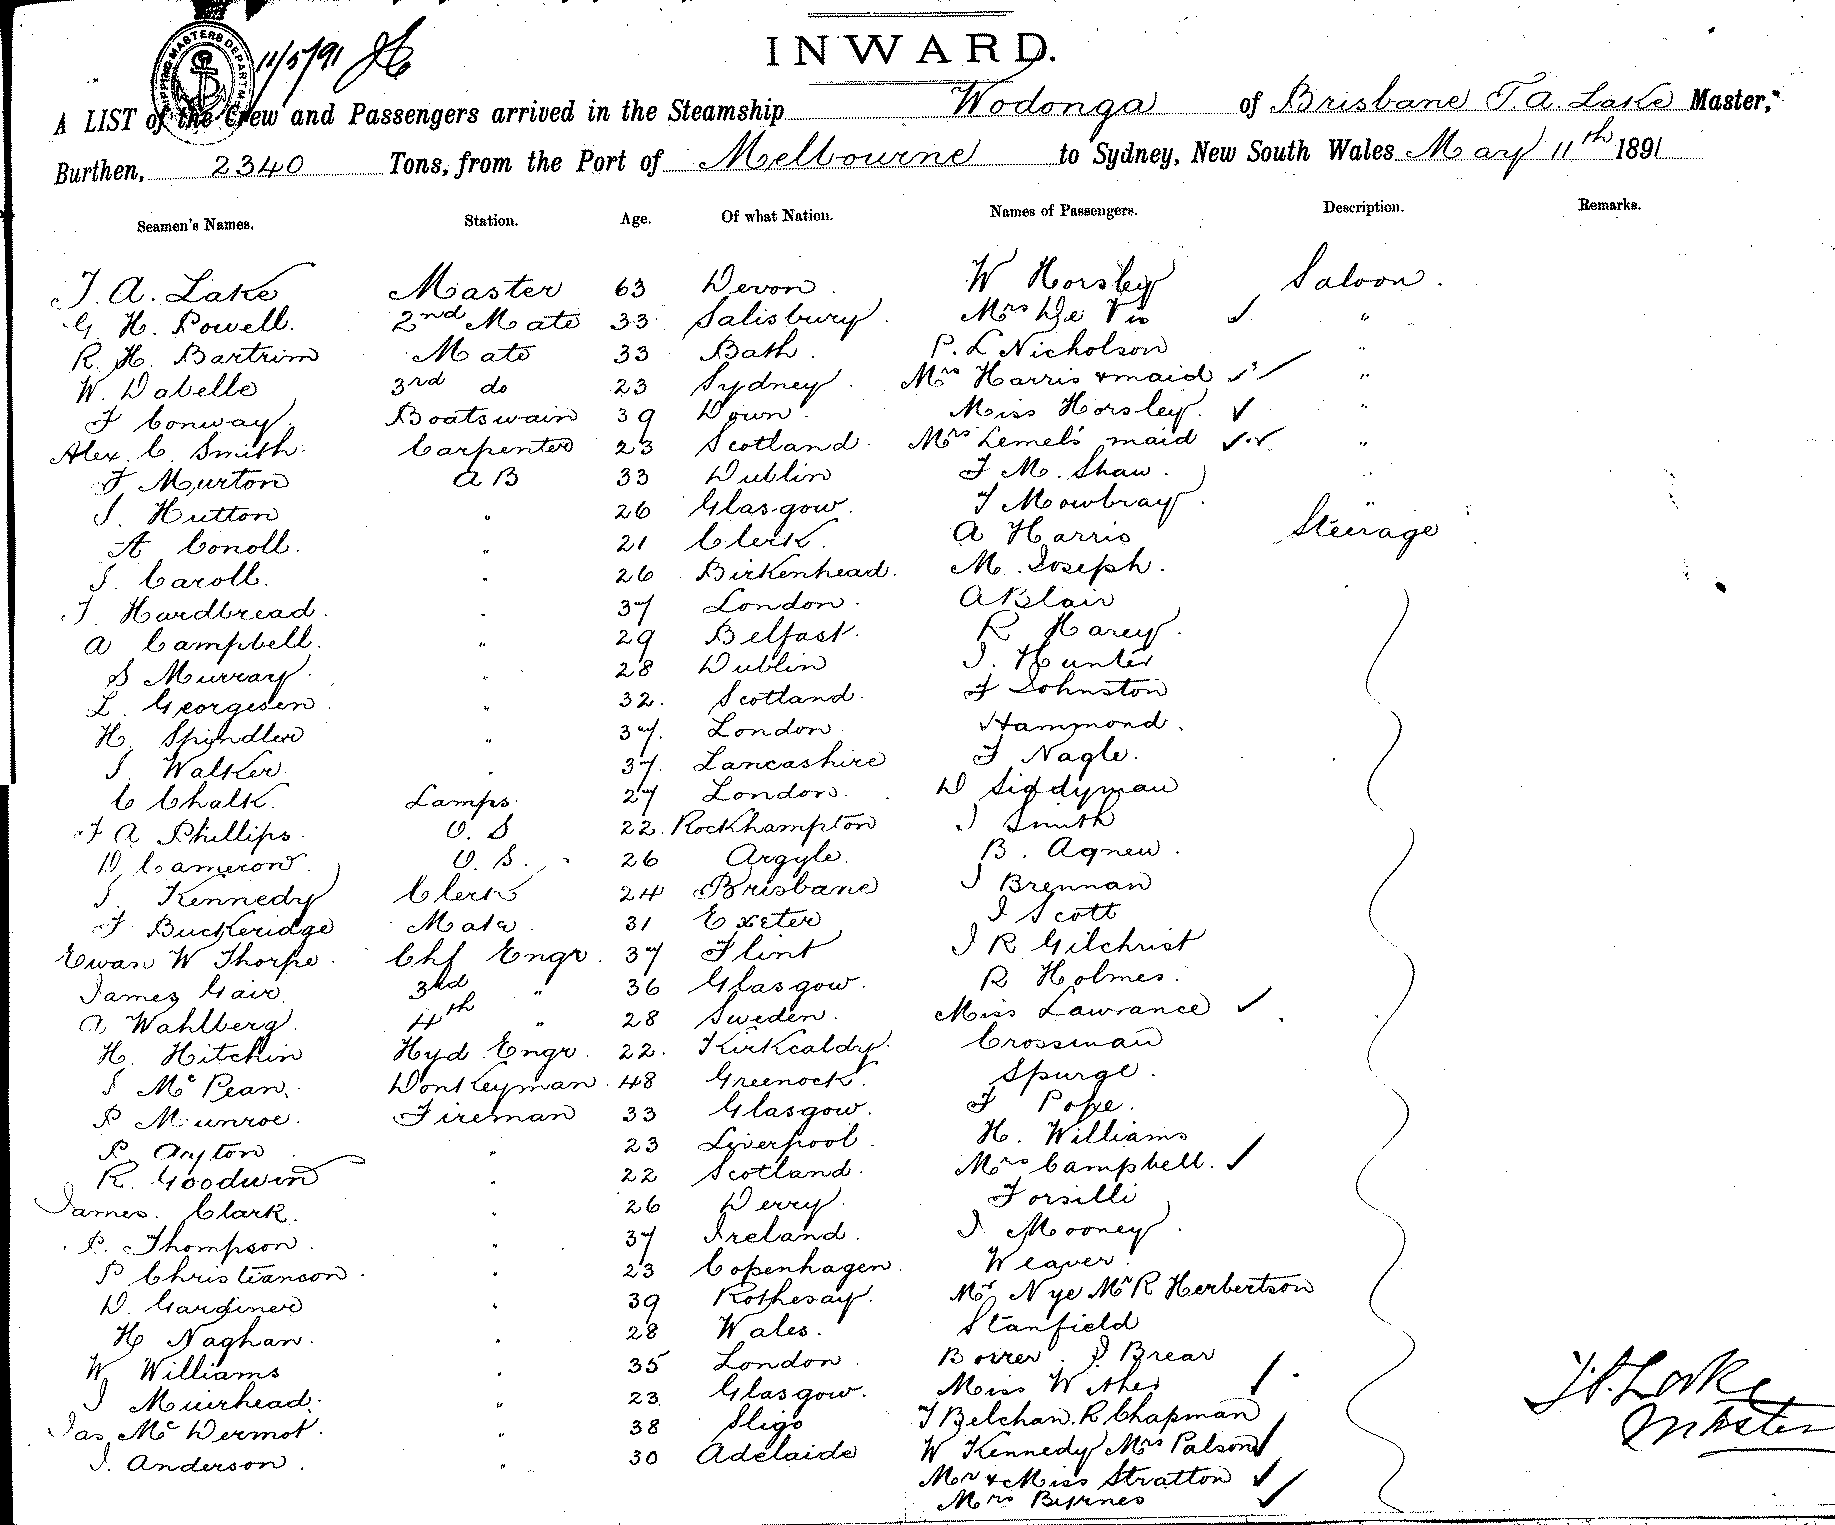 INWARD.
11/5/91
A LIST of the Crew and Passengers arrived in the Steamship Wodonga of Brisbane T. A. Lake Master,
Burthen, 2340 Tons, from the Port of Melbourne to Sydney, New South Wales May 11th 1891
Seamen's Names. Station. Age. Of what Nation. Names of Passengers. Description. Remarks.
T. A. Lake Master 63 Devon. W Horsley Saloon.
G H. Powell. 2nd Mate 33 Salisbury. Mrs De Vis "
R. H. Bartrim Mate 33 Bath. P. L Nicholson "
W. Dabelle 3rd do 23 Sydney. Mrs Harris & maid "
F Conway. Boatswain 39 Down. Miss Horsley. "
Alex. C. Smith. Carpenter 23 Scotland. Mrs Lemel's maid "
F Murton A B 33 Dublin F M. Shaw. "
J. Hutton " 26 Glasgow. T Mowbray. "
A Conoll. " 21 Clerk. A Harris Steerage
J. Caroll. " 26 Birkenhead. M. Joseph.
T. Hardbread. " 37 London. A Blair
A Campbell. " 29 Belfast. R Harey.
S Murray. " 28 Dublin J. Hunter
L. Georgesen " 32. Scotland. F Johnston
H. Spindler " 37. London. Hammond.
J. Walker. " 37. Lancashire F Nagle.
C Chalk. Lamps. 27 London. D Siddyman
F A Phillips. O. S 22. Rockhampton J Smith
D. Cameron. O. S. 26 Argyle. B. Agnew.
J. Kennedy Clerk 24 Brisbane J Brennan
F Buckeridge Mate 31 Exeter J Scott
Ewan W Thorpe. Chf Engr. 37 Flint J R Gilchrist
James Gair. 3rd " 36 Glasgow. R Holmes.
A Wahlberg. 4th " 28 Sweden. Miss Lawrance
H. Hitchin Hyd Engr. 22. Kirkcaldy. Crossman
J McPean. Donkeyman. 48 Greenock. Spurge.
P Munroe. Fireman 33 Glasgow. F Pope.
P. Ayton " 23 Liverpool. H. Williams
R. Goodwin " 22 Scotland. Mrs Campbell.
James. Clark. " 26 Derry. Forsilli
P. Thompson. " 37 Ireland. J. Mooney.
P Christianson. " 23 Copenhagen. Weaver.
D. Gardiner " 39 Rothesay. Mr Nye Mr R Herbertson
H Naghan. " 28 Wales. Stanfield
W Williams " 35 London. J. Brear
J Muirhead. " 23 Glasgow. Miss
Jas. McDermot. " 38 Sligo T Belchan. R Chapman
J. Anderson. " 30 Adelaide W Kennedy Mrs Palson
Mr & Miss Stratton
Mrs Byrnes
T. A. Lake
Master